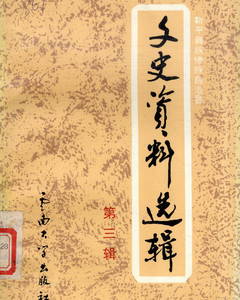 文史資料选辑
第三辑
云南大学出版社